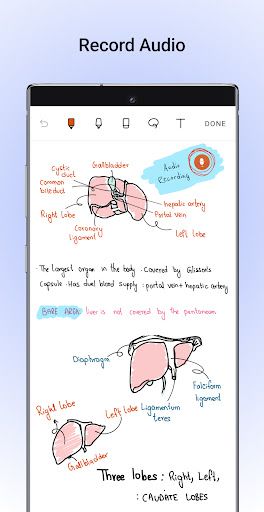 Record Audio
T DONE
Cystic
duct
Gallbladder
Audio
Recording
Common
bile duct
hepatic artery
Portal vein
Right lobe
Left lobe
Coronary
ligament
· The largest organ in the body · Covered by Glisson's
Capsule · Has duel blood supply : portal vein + hepatic artery
BARE AREA: liver is not covered by the peritoneum
Diaphragm
Falciform
ligament
Right lobe
Left lobe
Ligamentum
teres
Gallbladder
Three lobes : Right, Left,
: CAUDATE LOBES